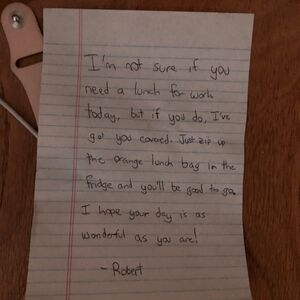 I'm not sure if you
need a lunch for work
today, but if you do, I've
got you covered. Just zip up
the orange lunch bag in the
fridge and you'll be good to go.
I hope your day is as
wonderful as you are!
- Robert